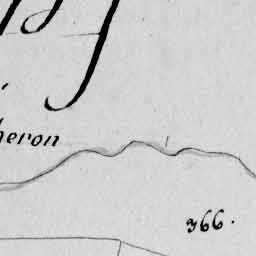 heron
366.